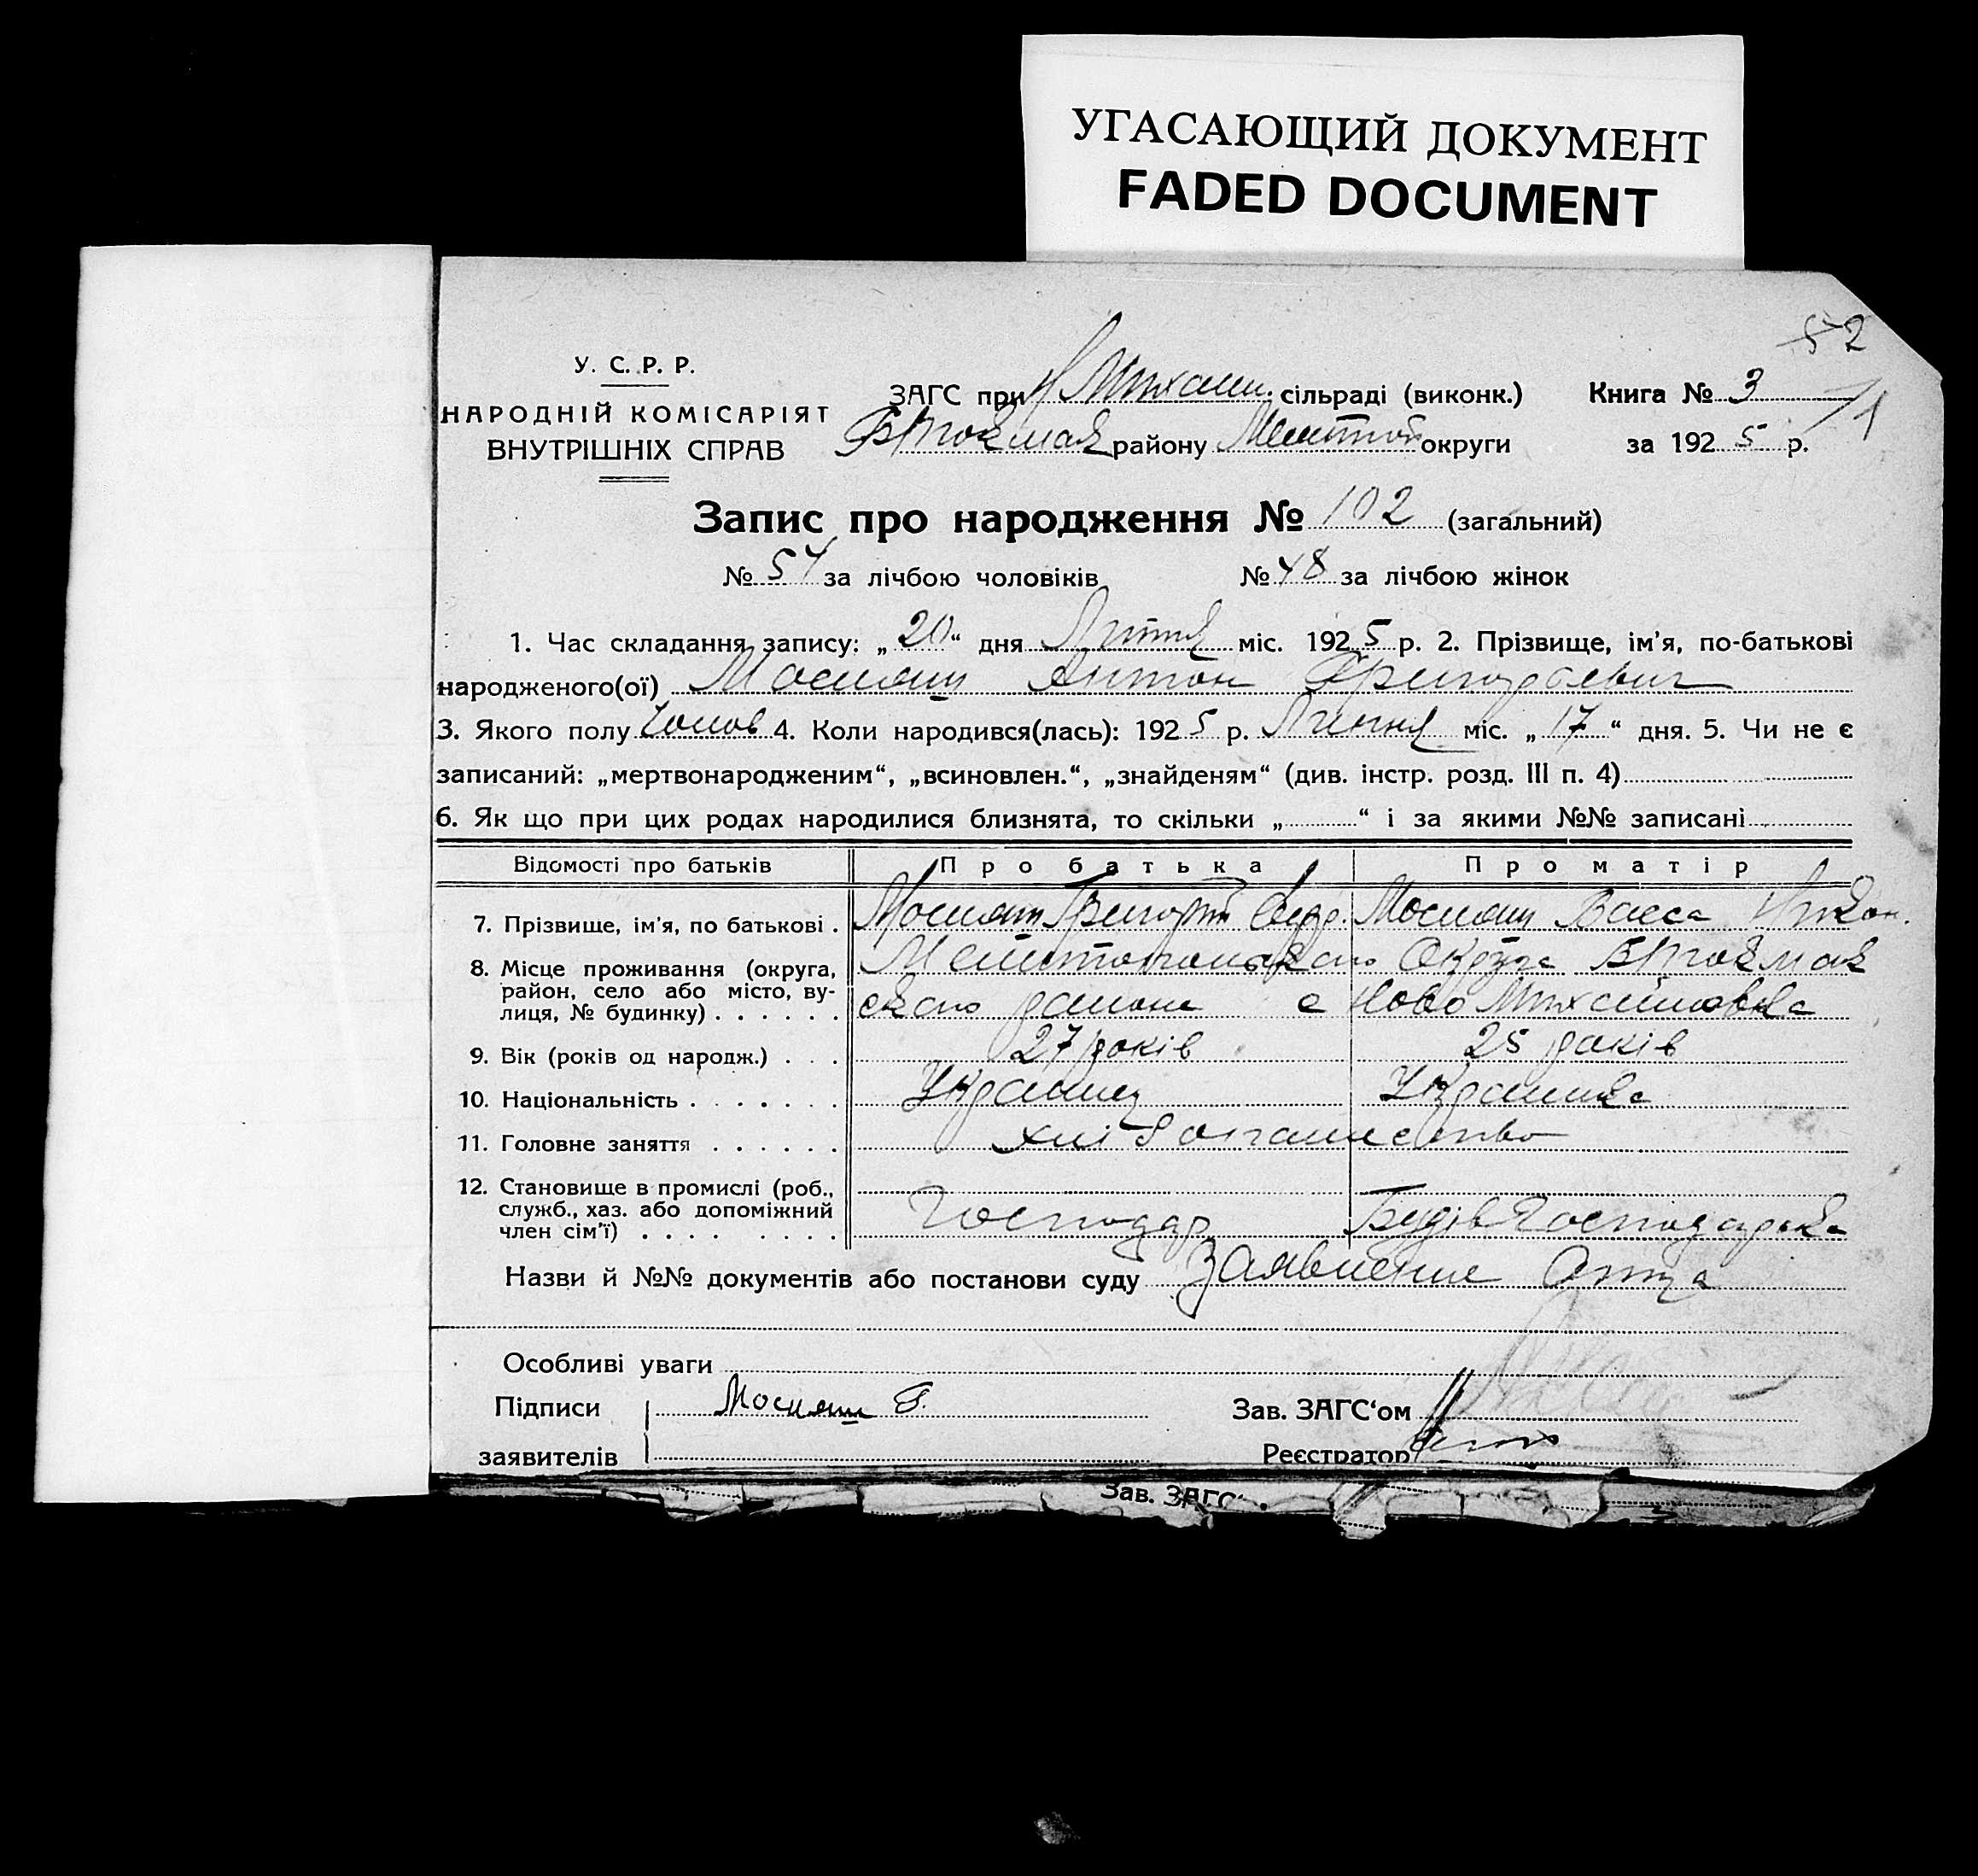 УГАСАЮЩИЙ ДОКУМЕНТ
FADED DOCUMENT
52
У. С. Р. Р.
НАРОДНІЙ КОМІСАРІЯТ
ВНУТРІШНІХ СПРАВ
ЗАГС при Н Михайл. сільраді (виконк.)
району Меліт округи
Книга № 3
за 1925 р.
Запис про народження № 102 (загальний)
№ 54 за лічбою чоловіків № 48 за лічбою жінок
1. Час складання запису: „20“ дня Липня міс. 1925 р. 2. Прізвище, ім'я, по-батькові
народженого(ої) Антон Григорьевич
3. Якого полу Чолов 4. Коли народився(лась): 1925 р. Липня міс. „17“ дня. 5. Чи не є
записаний: „мертвонародженим“, „всиновлен.“, „знайденям“ (див. інстр. розд. III п. 4)
6. Як що при цих родах народилися близнята, то скільки „ “ і за якими №№ записані
Відомості про батьків Про батька Про матір
7. Прізвище, ім'я, по батькові . Григорій Васса Никон.
8. Місце проживання (округа, Округа
район, село або місто, ву- района с Ново Михайловка
лиця, № будинку) . . . . . .
9. Вік (років од народж.) . . . 27 років 25 років
10. Національність . . . . . . . Українец Українка
11. Головне заняття . . . . . . хліборапашество
12. Становище в промислі (роб.,
служб., хаз. або допоміжний Господар Господарька
член сім'ї) . . . . . . . .
Назви й №№ документів або постанови суду Заявление Отца
Особливі уваги
Підписи Г.
Зав. ЗАГС'ом
заявителів
Реєстратор
Зав. ЗАГС'